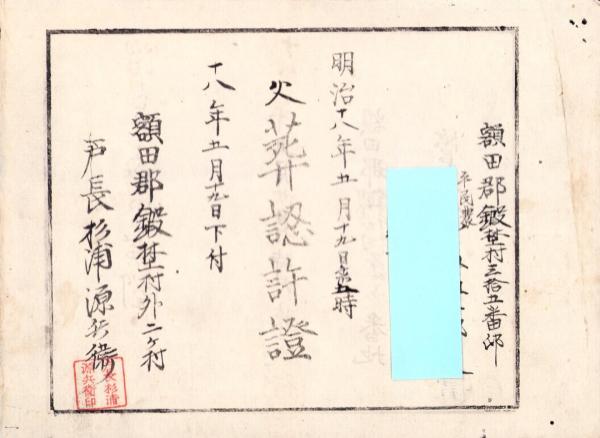 額田郡鍛埜村三拾五番邸
平民農
明治十八年五月十九日第五時
火葬認許證
十八年五月十九日下付
額田郡鍛埜村外二ヶ村
戸長杉浦源兵衛
杉浦
源兵衛印